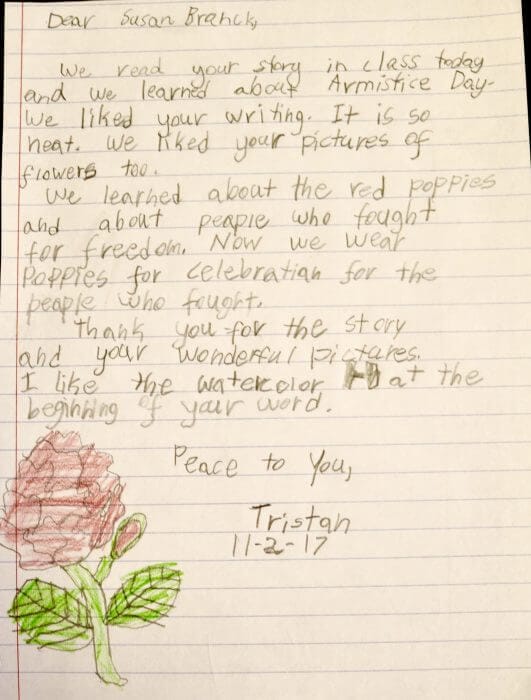 Dear Susan Branck,
We read your story in class today
and we learned about Armistice Day.
We liked your writing. It is so
neat. We liked your pictures of
flowers too.
We learned about the red poppies
and about peaple who fought
for freedom. Now we wear
Poppies for celebration for the
peaple who fought.
Thank you for the story
and your wonderful pictares.
I like the watercolor at the
beginning of your word.
Peace to You,
Tristan
11-2-17